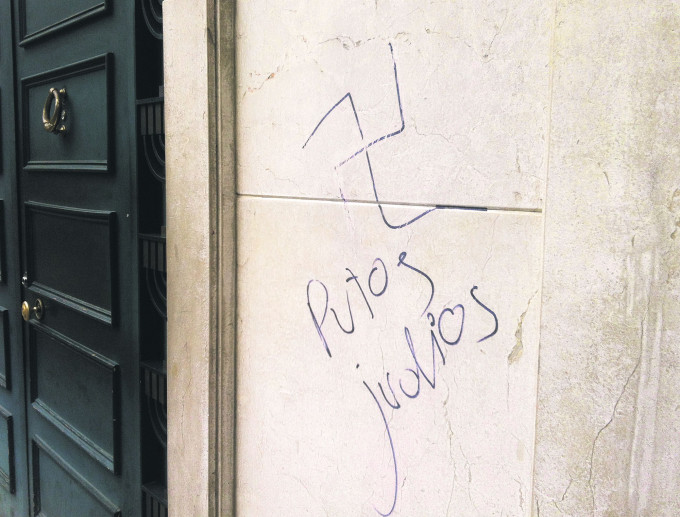 Putos
judios